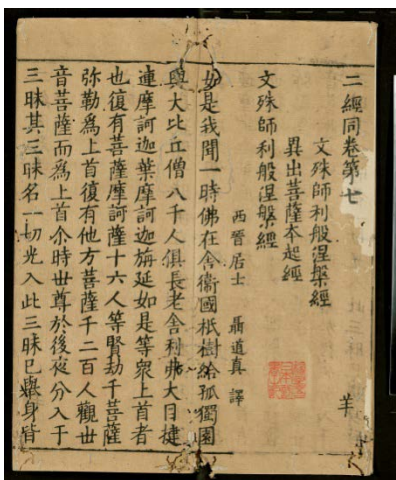 二經同卷第七
文殊師利般涅槃經
異出菩薩本起經
羊
文殊師利般涅槃經
西晉居士 聶道真 譯
如是我聞一時佛在舍衛國祇樹給孤獨園
與大比丘僧八千人俱長老舍利弗大目揵
連摩訶迦葉摩訶迦旃延如是等眾上首者
也復有菩薩摩訶薩十六人等賢劫千菩薩
弥勒為上首復有他方菩薩千二百人觀世
音菩薩而為上首尒時世尊於後夜分入于
三昧其三昧名一切光入此三昧已舉身皆